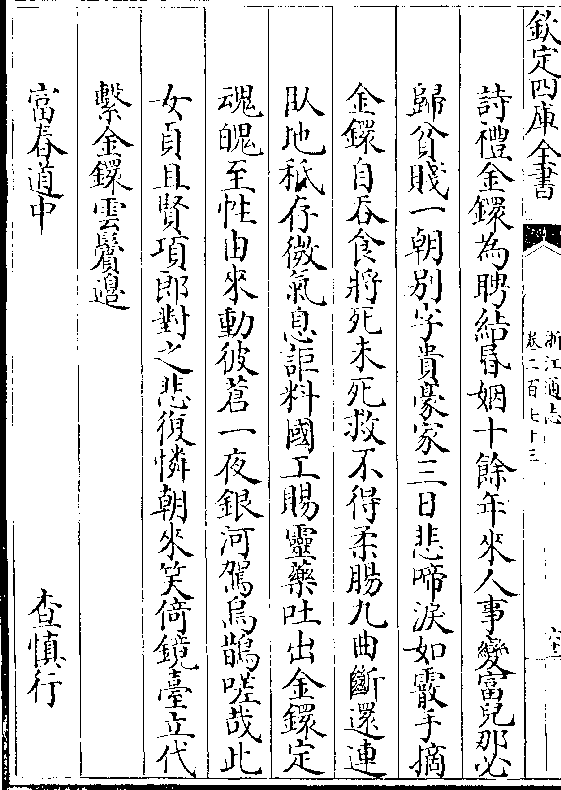 欽定四庫全書
浙江通志
卷二百七十三
詩禮金鐶為聘結㛰姻十餘年來人事變富兒那必
歸貧賤一朝別字貴豪家三日悲啼淚如霰手摘
金鐶自吞食將死未死救不得柔腸九曲斷還連
臥地秪存微氣息詎料國工賜靈藥吐出金鐶定
魂魄至性由來動彼蒼一夜銀河駕烏鵲嗟哉此
女貞且賢項郎對之悲復憐朝來笑倚鏡臺立代
繫金鐶雲鬢邉
富春道中
查慎行